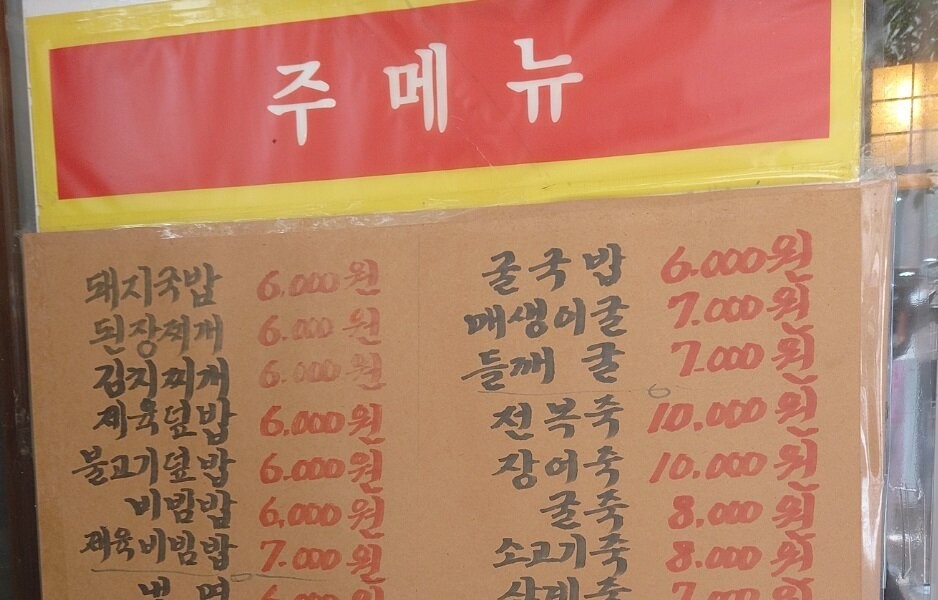 주메뉴
돼지국밥 6.000원
된장찌개 6.000원
김치찌개 6.000원
제육덮밥 6.000원
불고기덮밥 6.000원
비빔밥 6,000원
제육비빔밥 7.000원
냉면 6.000원
굴국밥 6.000원
매생이굴 7.000원
들깨 굴 7.000원
전복죽 10,000원
장어죽 10,000원
굴죽 8,000원
소고기죽 8.000원
삼계죽 7.000원